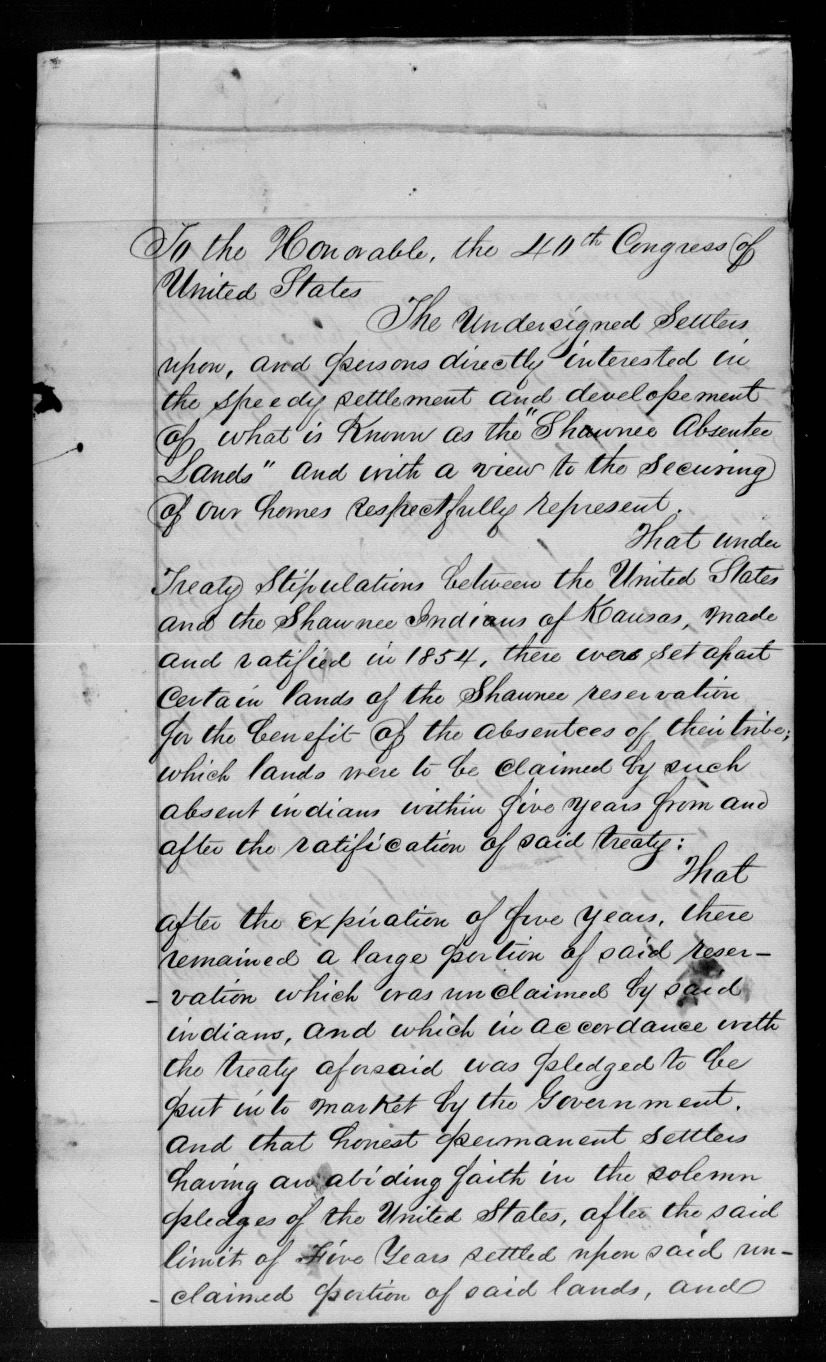 To the Honorable, the 40th Congress of
United States
The Undersigned Settlers
upon, and persons directly interested in
the speedy settlement and developement
of what is Known as the "Shawnee Absentee
Lands" and with a view to the securing
of our homes respectfully represent.
That under
Treaty Stipulations between the United States
and the Shawnee Indians of Kansas, made
and ratified in 1854, there were set apart
certain lands of the Shawnee reservation
for the benefit of the absentees of their tribe;
which lands were to be claimed by such
absent indians within five years from and
after the ratification of said treaty:
That
after the expiration of five years, there
remained a large portion of said reser-
vation which was unclaimed by said
indians, and which in accordance with
the treaty aforsaid was pledged to be
put into market by the Government.
And that honest permanent settlers
having an abiding faith in the solemn
pledges of the United States, after the said
limit of Five Years settled upon said un-
claimed portion of said lands, and